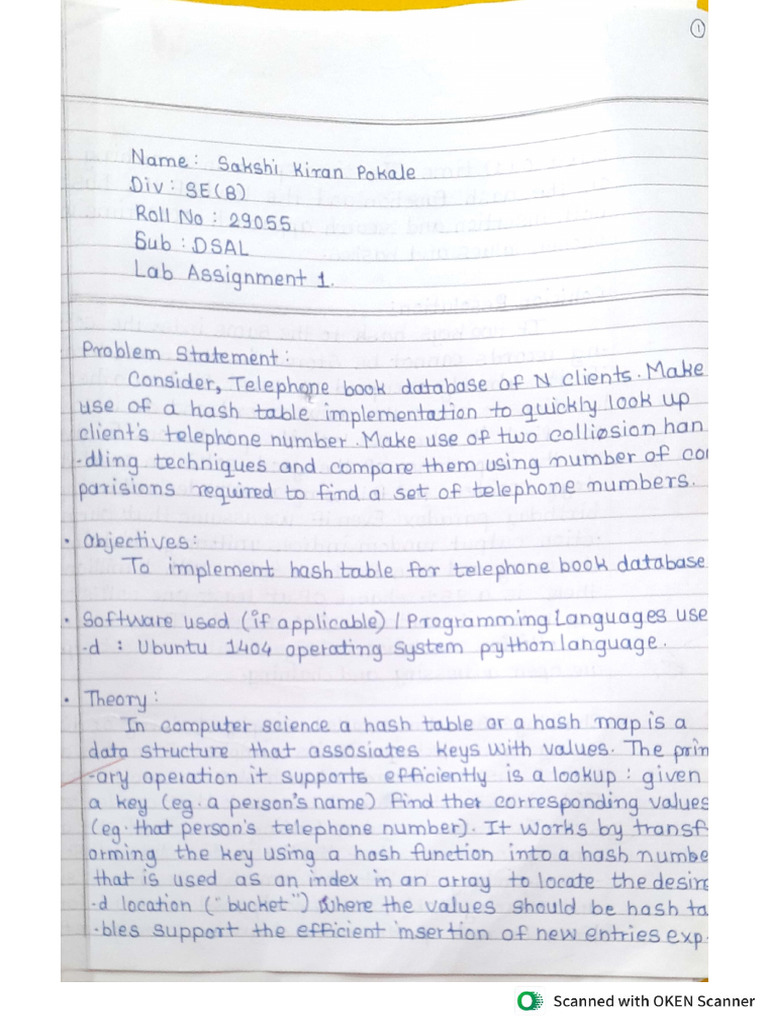 1
Name: Sakshi Kiran Pokale
Div: SE(B)
Roll No: 29055
Sub: DSAL
Lab Assignment 1.
Problem Statement:
Consider, Telephone book database of N clients. Make
use of a hash table implementation to quickly look up
client's telephone number. Make use of two colliosion han
-dling techniques and compare them using number of co
parisions required to find a set of telephone numbers.
• Objectives:
To implement hash table for telephone book database
• Software used (if applicable) / Programming Languages use
-d : Ubuntu 1404 operating system python language.
• Theory:
In computer science a hash table or a hash map is a
data structure that assosiates keys with values. The prim
-ary operation it supports efficiently is a lookup: given
a key (eg. a person's name) find ther corresponding values
(eg. that person's telephone number). It works by transf
orming the key using a hash function into a hash numbe
that is used as an index in an array to locate the desire
-d location ("bucket") where the values should be hash ta
-bles support the efficient insertion of new entries exp
Scanned with OKEN Scanner